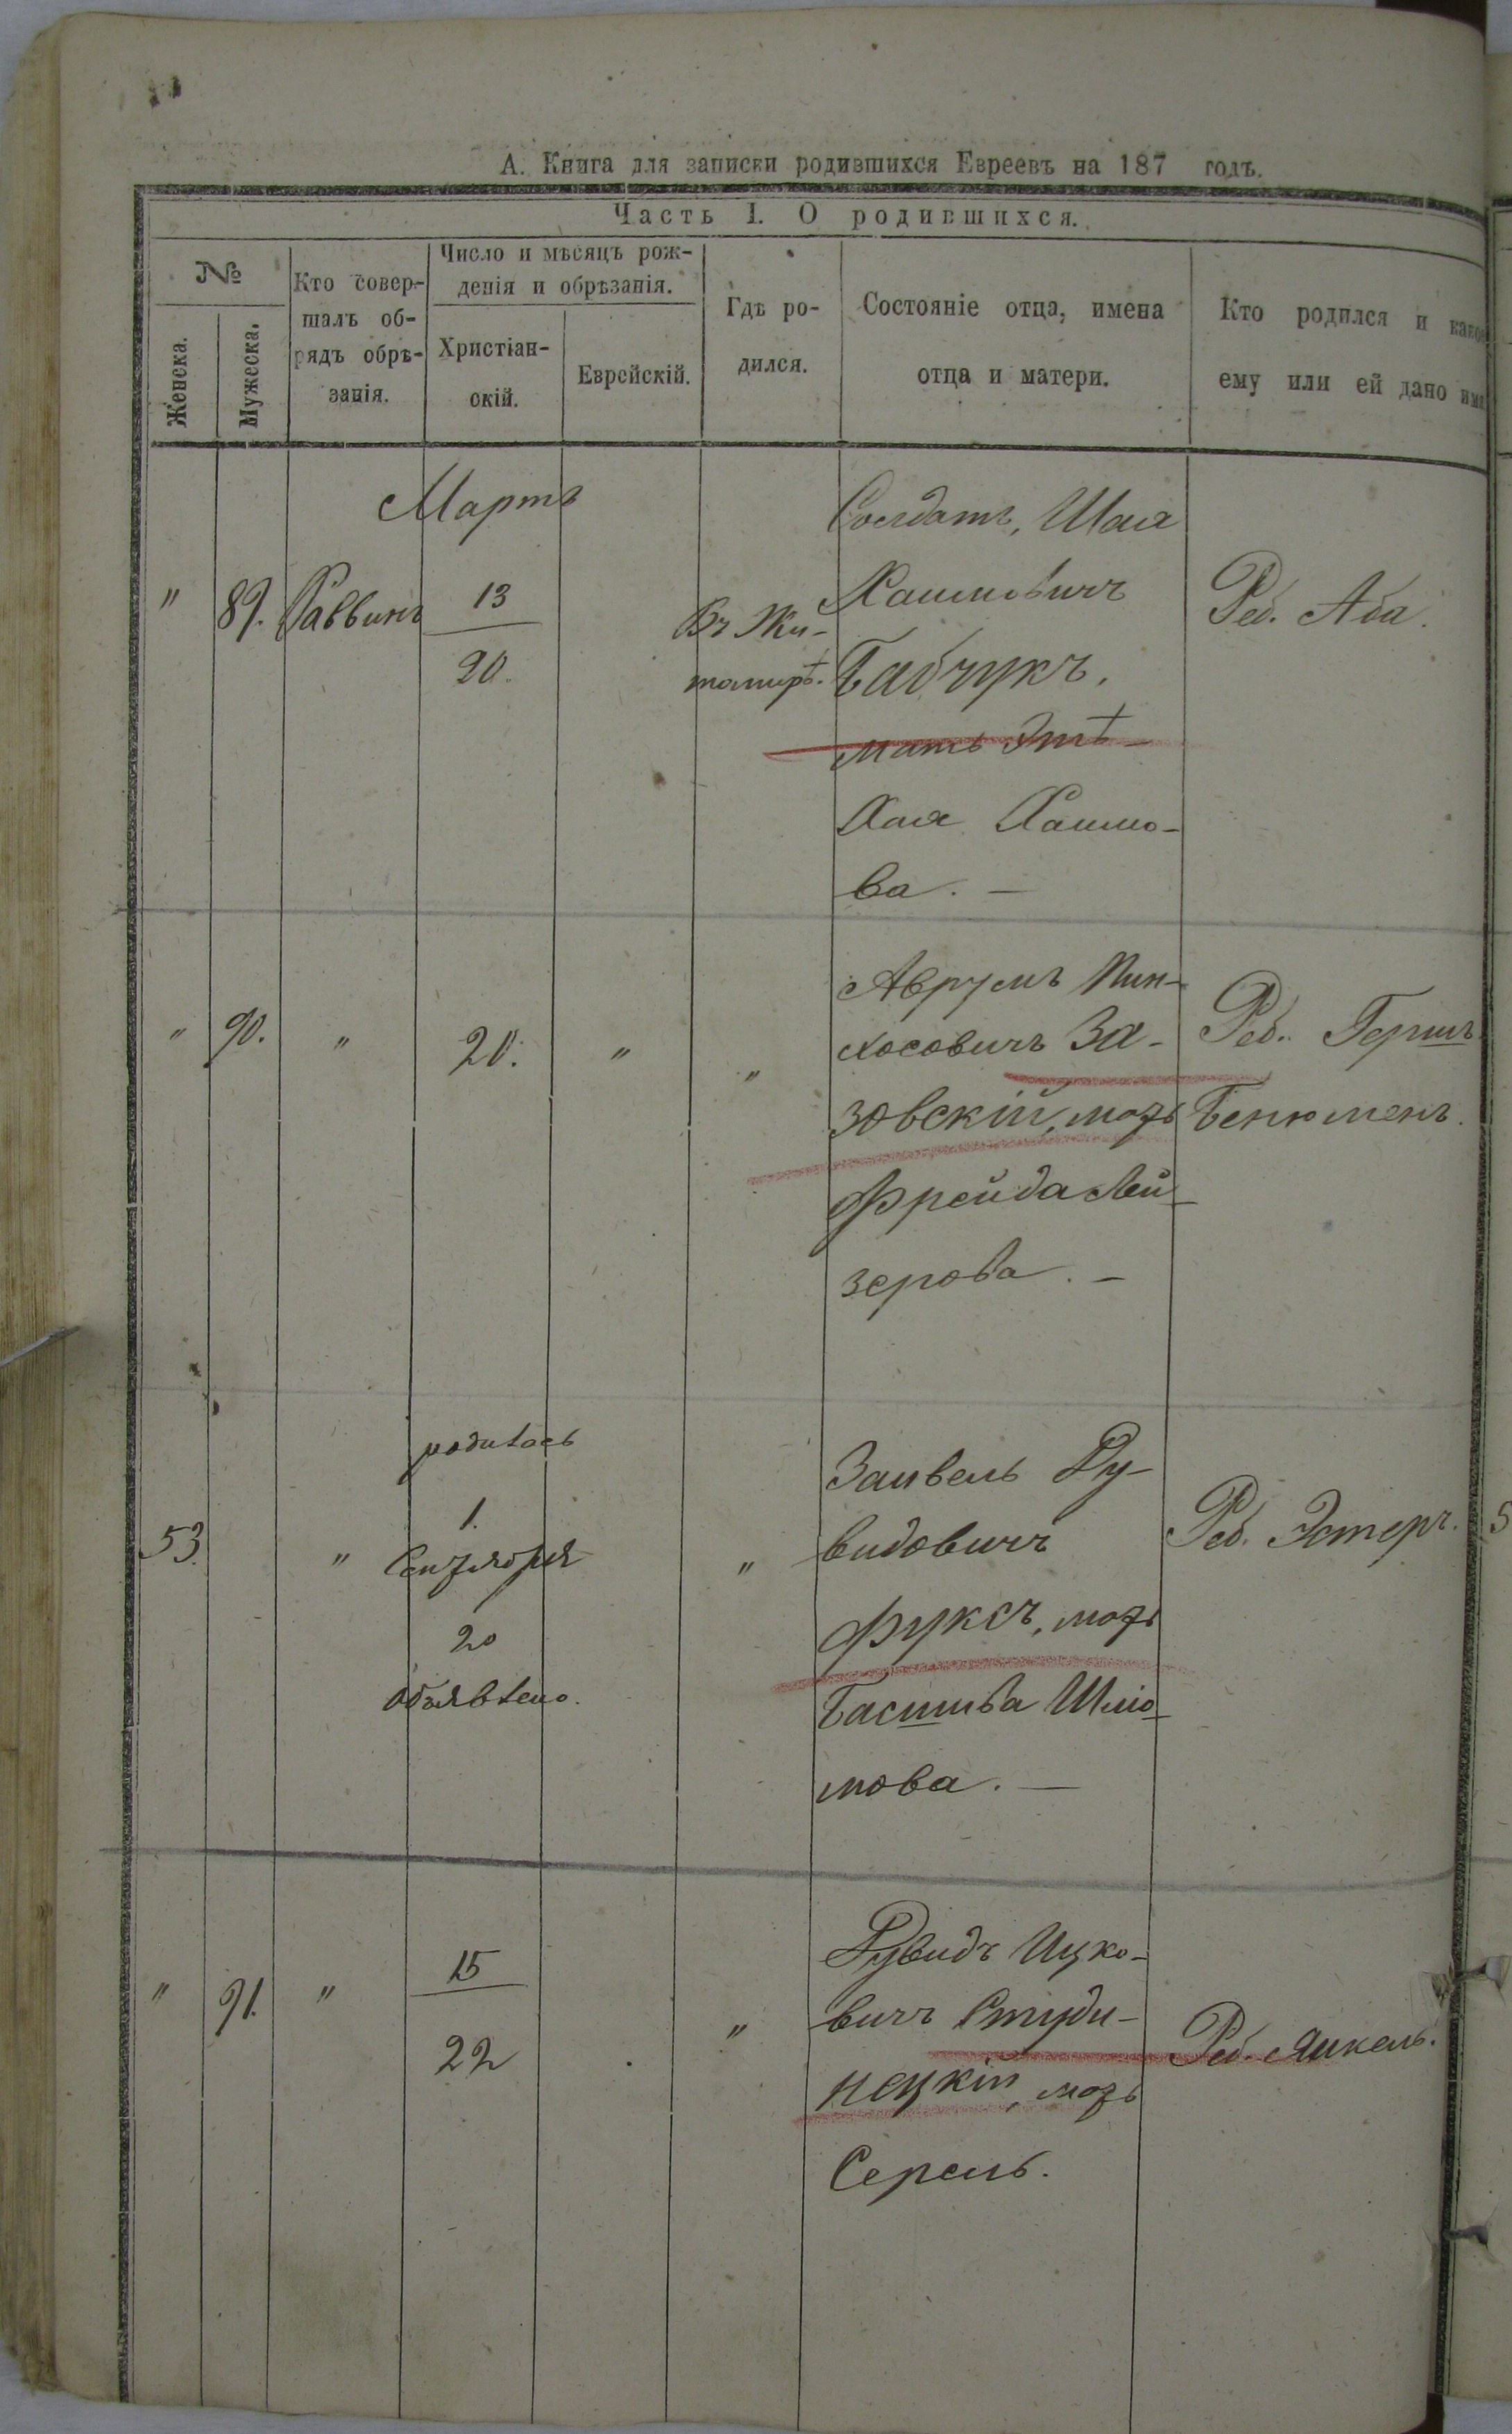 А. Книга для записки родившихся Евреевъ на 187 годъ.
Часть I. О родившихся.
№
Женска.
Мужеска.
Кто совер-
шалъ об-
рядъ обрѣ-
занія.
Число и мѣсяцъ рож-
денія и обрѣзанія.
Христіан-
скій.
Еврейскій.
Гдѣ ро-
дился.
Состояніе отца, имена
отца и матери.
Кто родился и какое
ему или ей дано имя
Мартъ
" 89. Раввинъ
13
20.
Въ Жи-
томирѣ.
Солдатъ, Шая
Хаимовичъ
Бабчукъ,
мать Этѣ-
Хая Хаимо-
ва. –
Реб. Аба.
" 90. " 20. " "
Аврумъ Пин-
хосовичъ За-
зовскій, мать
Фрейда Лей-
зерова. –
Реб. Гершъ
Бенюменъ.
53. "
родилась
1.
Сентября
20
объявлено.
"
Заивель Ду-
видовичъ
Фуксъ, мать
Басшива Шлио-
мова. –
Реб. Эстеръ.
5
" 91. "
15
22
"
Дувидъ Ицко-
вичъ Студи-
нецкій, мать
Серель.
Реб. Янкель.